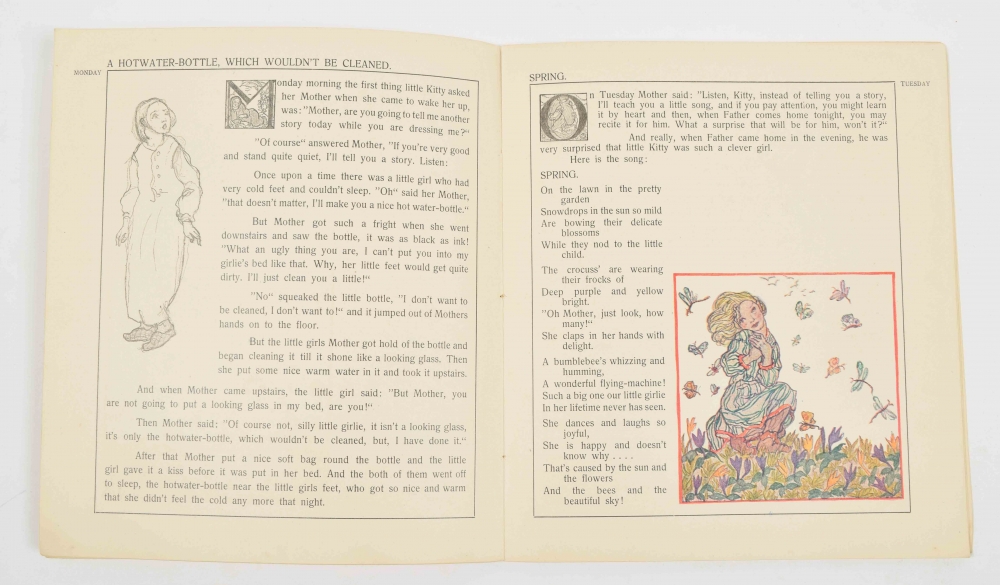 A HOTWATER-BOTTLE, WHICH WOULDN'T BE CLEANED.
MONDAY
Monday morning the first thing little Kitty asked
her Mother when she came to wake her up,
was: "Mother, are you going to tell me another
story today while you are dressing me?"
"Of course" answered Mother, "If you're very good
and stand quite quiet, I'll tell you a story. Listen:
Once upon a time there was a little girl who had
very cold feet and couldn't sleep. "Oh" said her Mother,
"that doesn't matter, I'll make you a nice hot water-bottle."
But Mother got such a fright when she went
downstairs and saw the bottle, it was as black as ink!
"What an ugly thing you are, I can't put you into my
girlie's bed like that. Why, her little feet would get quite
dirty. I'll just clean you a little!"
"No" squeaked the little bottle, "I don't want to
be cleaned, I don't want to!" and it jumped out of Mothers
hands on to the floor.
But the little girls Mother got hold of the bottle and
began cleaning it till it shone like a looking glass. Then
she put some nice warm water in it and took it upstairs.
And when Mother came upstairs, the little girl said: "But Mother, you
are not going to put a looking glass in my bed, are you!"
Then Mother said: "Of course not, silly little girlie, it isn't a looking glass,
it's only the hotwater-bottle, which wouldn't be cleaned, but, I have done it."
After that Mother put a nice soft bag round the bottle and the little
girl gave it a kiss before it was put in her bed. And the both of them went off
to sleep, the hotwater-bottle near the little girls feet, who got so nice and warm
that she didn't feel the cold any more that night.
SPRING.
TUESDAY
On Tuesday Mother said: "Listen, Kitty, instead of telling you a story,
I'll teach you a little song, and if you pay attention, you might learn
it by heart and then, when Father comes home tonight, you may
recite it for him. What a surprise that will be for him, won't it?"
And really, when Father came home in the evening, he was
very surprised that little Kitty was such a clever girl.
Here is the song:
SPRING.
On the lawn in the pretty
garden
Snowdrops in the sun so mild
Are bowing their delicate
blossoms
While they nod to the little
child.
The crocuss' are wearing
their frocks of
Deep purple and yellow
bright.
"Oh Mother, just look, how
many!"
She claps in her hands with
delight.
A bumblebee's whizzing and
humming,
A wonderful flying-machine!
Such a big one our little girlie
In her lifetime never has seen.
She dances and laughs so
joyful,
She is happy and doesn't
know why . . . .
That's caused by the sun and
the flowers
And the bees and the
beautiful sky!